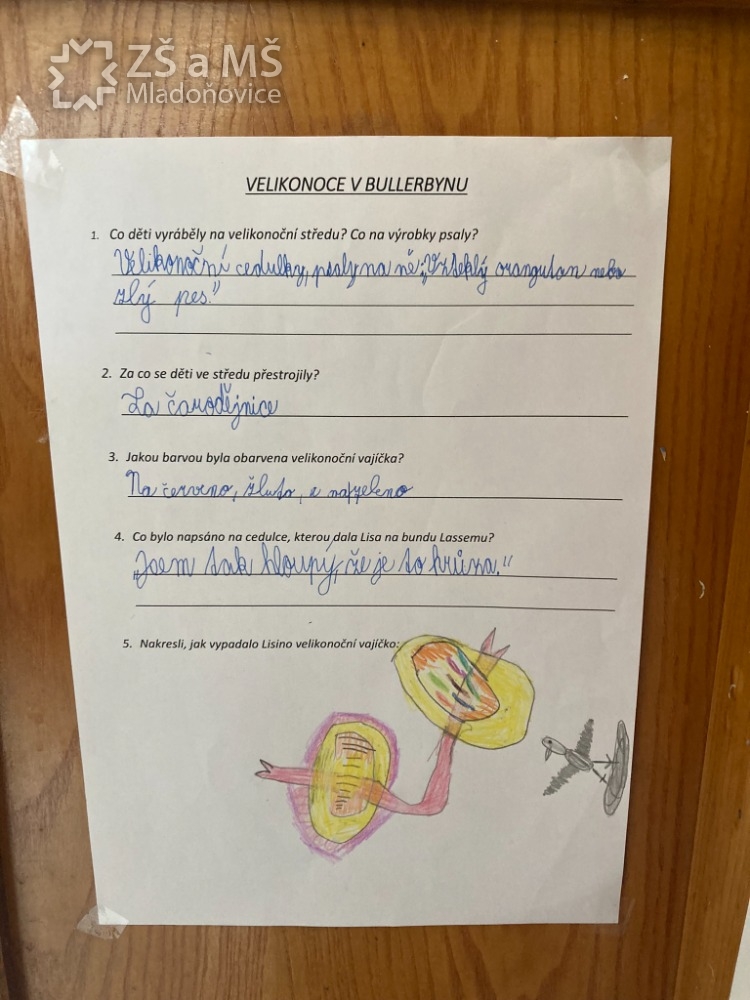 ZŠ a MŠ
Mladoňovice
VELIKONOCE V BULLERBYNU
1. Co děti vyráběly na velikonoční středu? Co na výrobky psaly?
Velikonoční cedulky, psaly na ně: „Vzteklý orangutan nebo
zlý pes."
2. Za co se děti ve středu přestrojily?
Za čarodějnice
3. Jakou barvou byla obarvena velikonoční vajíčka?
Na červeno, žluto, a nazeleno
4. Co bylo napsáno na cedulce, kterou dala Lisa na bundu Lassemu?
„Jsem tak hloupý, že je to hrůza."
5. Nakresli, jak vypadalo Lisino velikonoční vajíčko: